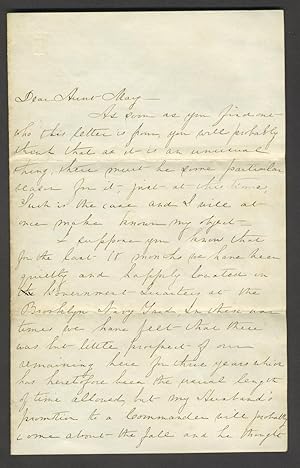 Dear Aunt May –
As soon as you find out
who this letter is from, you will probably
think that as it is an unusual
thing, there must be some particular
reason for it – just at this time,
Such is the case and I will at
once make known my object –
I suppose you know that
for the last 18 months we have been
quietly and happily located in
Government Quarters at the
Brooklyn Navy Yard In these war
times we have felt that there
was but little prospect of our
remaining here for three years which
has heretofore been the usual length
of time allowed, but my Husband's
promotion to a Commander will probably
come about the fall and he thought